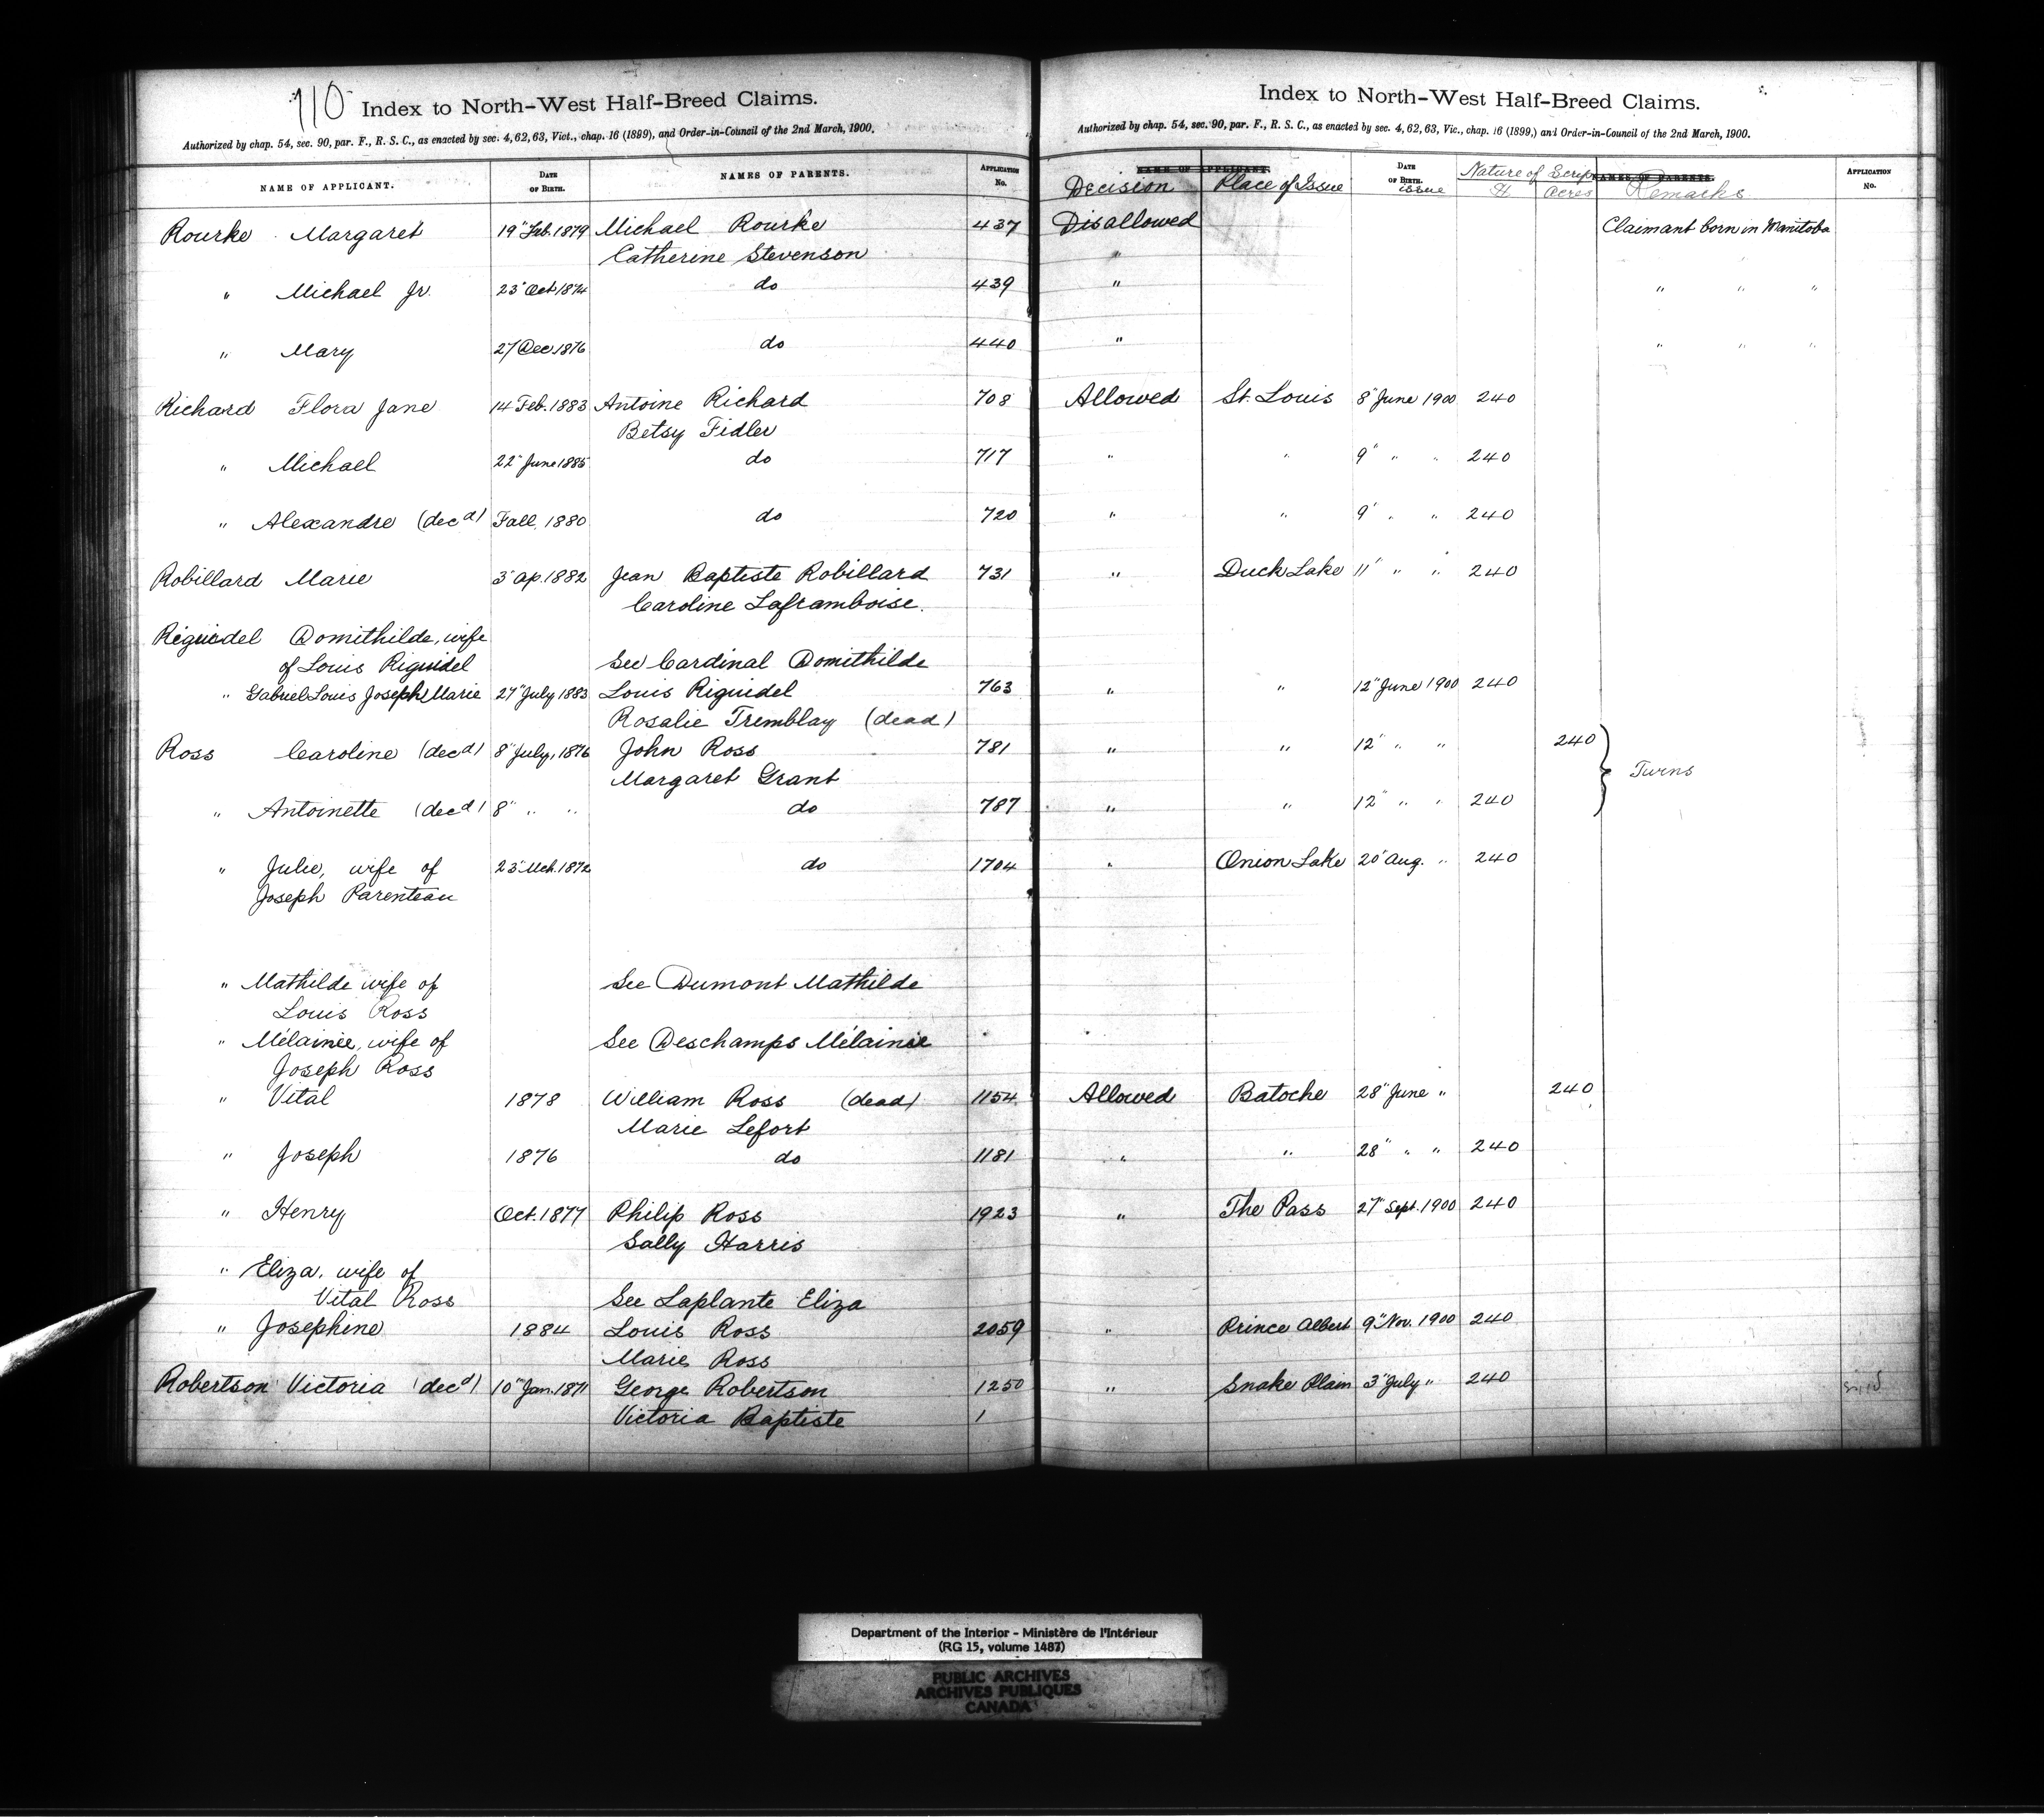 110 Index to North-West Half-Breed Claims.
Authorized by chap. 54, sec. 90, par. F., R. S. C., as enacted by sec. 4, 62, 63, Vict., chap. 16 (1899), and Order-in-Council of the 2nd March, 1900.
NAME OF APPLICANT. DATE OF BIRTH. NAMES OF PARENTS. APPLICATION No.
Rourke Margaret 19" Feb. 1879 Michael Rourke 437
Catherine Stevenson
" Michael Jr. 23" Oct 1874 do 439
" Mary 27 Dec 1876 do 440
Richard Flora Jane 14 Feb. 1883 Antoine Richard 708
Betsy Fidler
" Michael 22" June 1885 do 717
" Alexandre (dec'd) Fall 1880 do 720
Robillard Marie 3" Ap. 1882 Jean Baptiste Robillard 731
Caroline Laframboise.
Riguidel Domithilde, wife
of Louis Riguidel See Cardinal Domithilde
" Gabriel Louis Joseph Marie 27" July 1883 Louis Riguidel 763
Rosalie Tremblay (dead)
Ross Caroline (dec'd) 8" July, 1876 John Ross 781
Margaret Grant
" Antoinette (dec'd) 8" " " do 787
" Julie, wife of 23" Mch. 1872 do 1704
Joseph Parenteau
" Mathilde wife of See Dumont Mathilde
Louis Ross
" Mélainie, wife of See Deschamps Mélainie
Joseph Ross
" Vital 1878 William Ross (dead) 1154
Marie Lefort
" Joseph 1876 do 1181
" Henry Oct. 1877 Philip Ross 1923
Sally Harris
" Eliza, wife of
Vital Ross See Laplante Eliza
" Josephine 1884 Louis Ross 2059
Marie Ross
Robertson Victoria (dec'd) 10" Jan. 1871 George Robertson 1250
Victoria Baptiste 1
Index to North-West Half-Breed Claims.
Authorized by chap. 54, sec. 90, par. F., R. S. C., as enacted by sec. 4, 62, 63, Vic., chap. 16 (1899,) and Order-in-Council of the 2nd March, 1900.
NAME OF APPLICANT. DATE OF BIRTH. Nature of Scrip NAMES OF PARENTS. APPLICATION No.
Decision Place of Issue issue $ Acres Remarks
Disallowed Claimant born in Manitoba
"
" " " "
" " " "
Allowed St. Louis 8" June 1900 240
" " 9" " " 240
" " 9" " " 240
" Duck Lake 11" " " 240
" " 12" June 1900 240
" " 12" " " 240
Twins
" " 12" " " 240
" Onion Lake 20" Aug. " 240
Allowed Batoche 28" June " 240
" " 28" " " 240
" The Pass 27" Sept. 1900 240
" Prince Albert 9" Nov. 1900 240
" Snake Plain 3" July " 240
Department of the Interior - Ministère de l'Intérieur
(RG 15, volume 1487)
PUBLIC ARCHIVES
ARCHIVES PUBLIQUES
CANADA